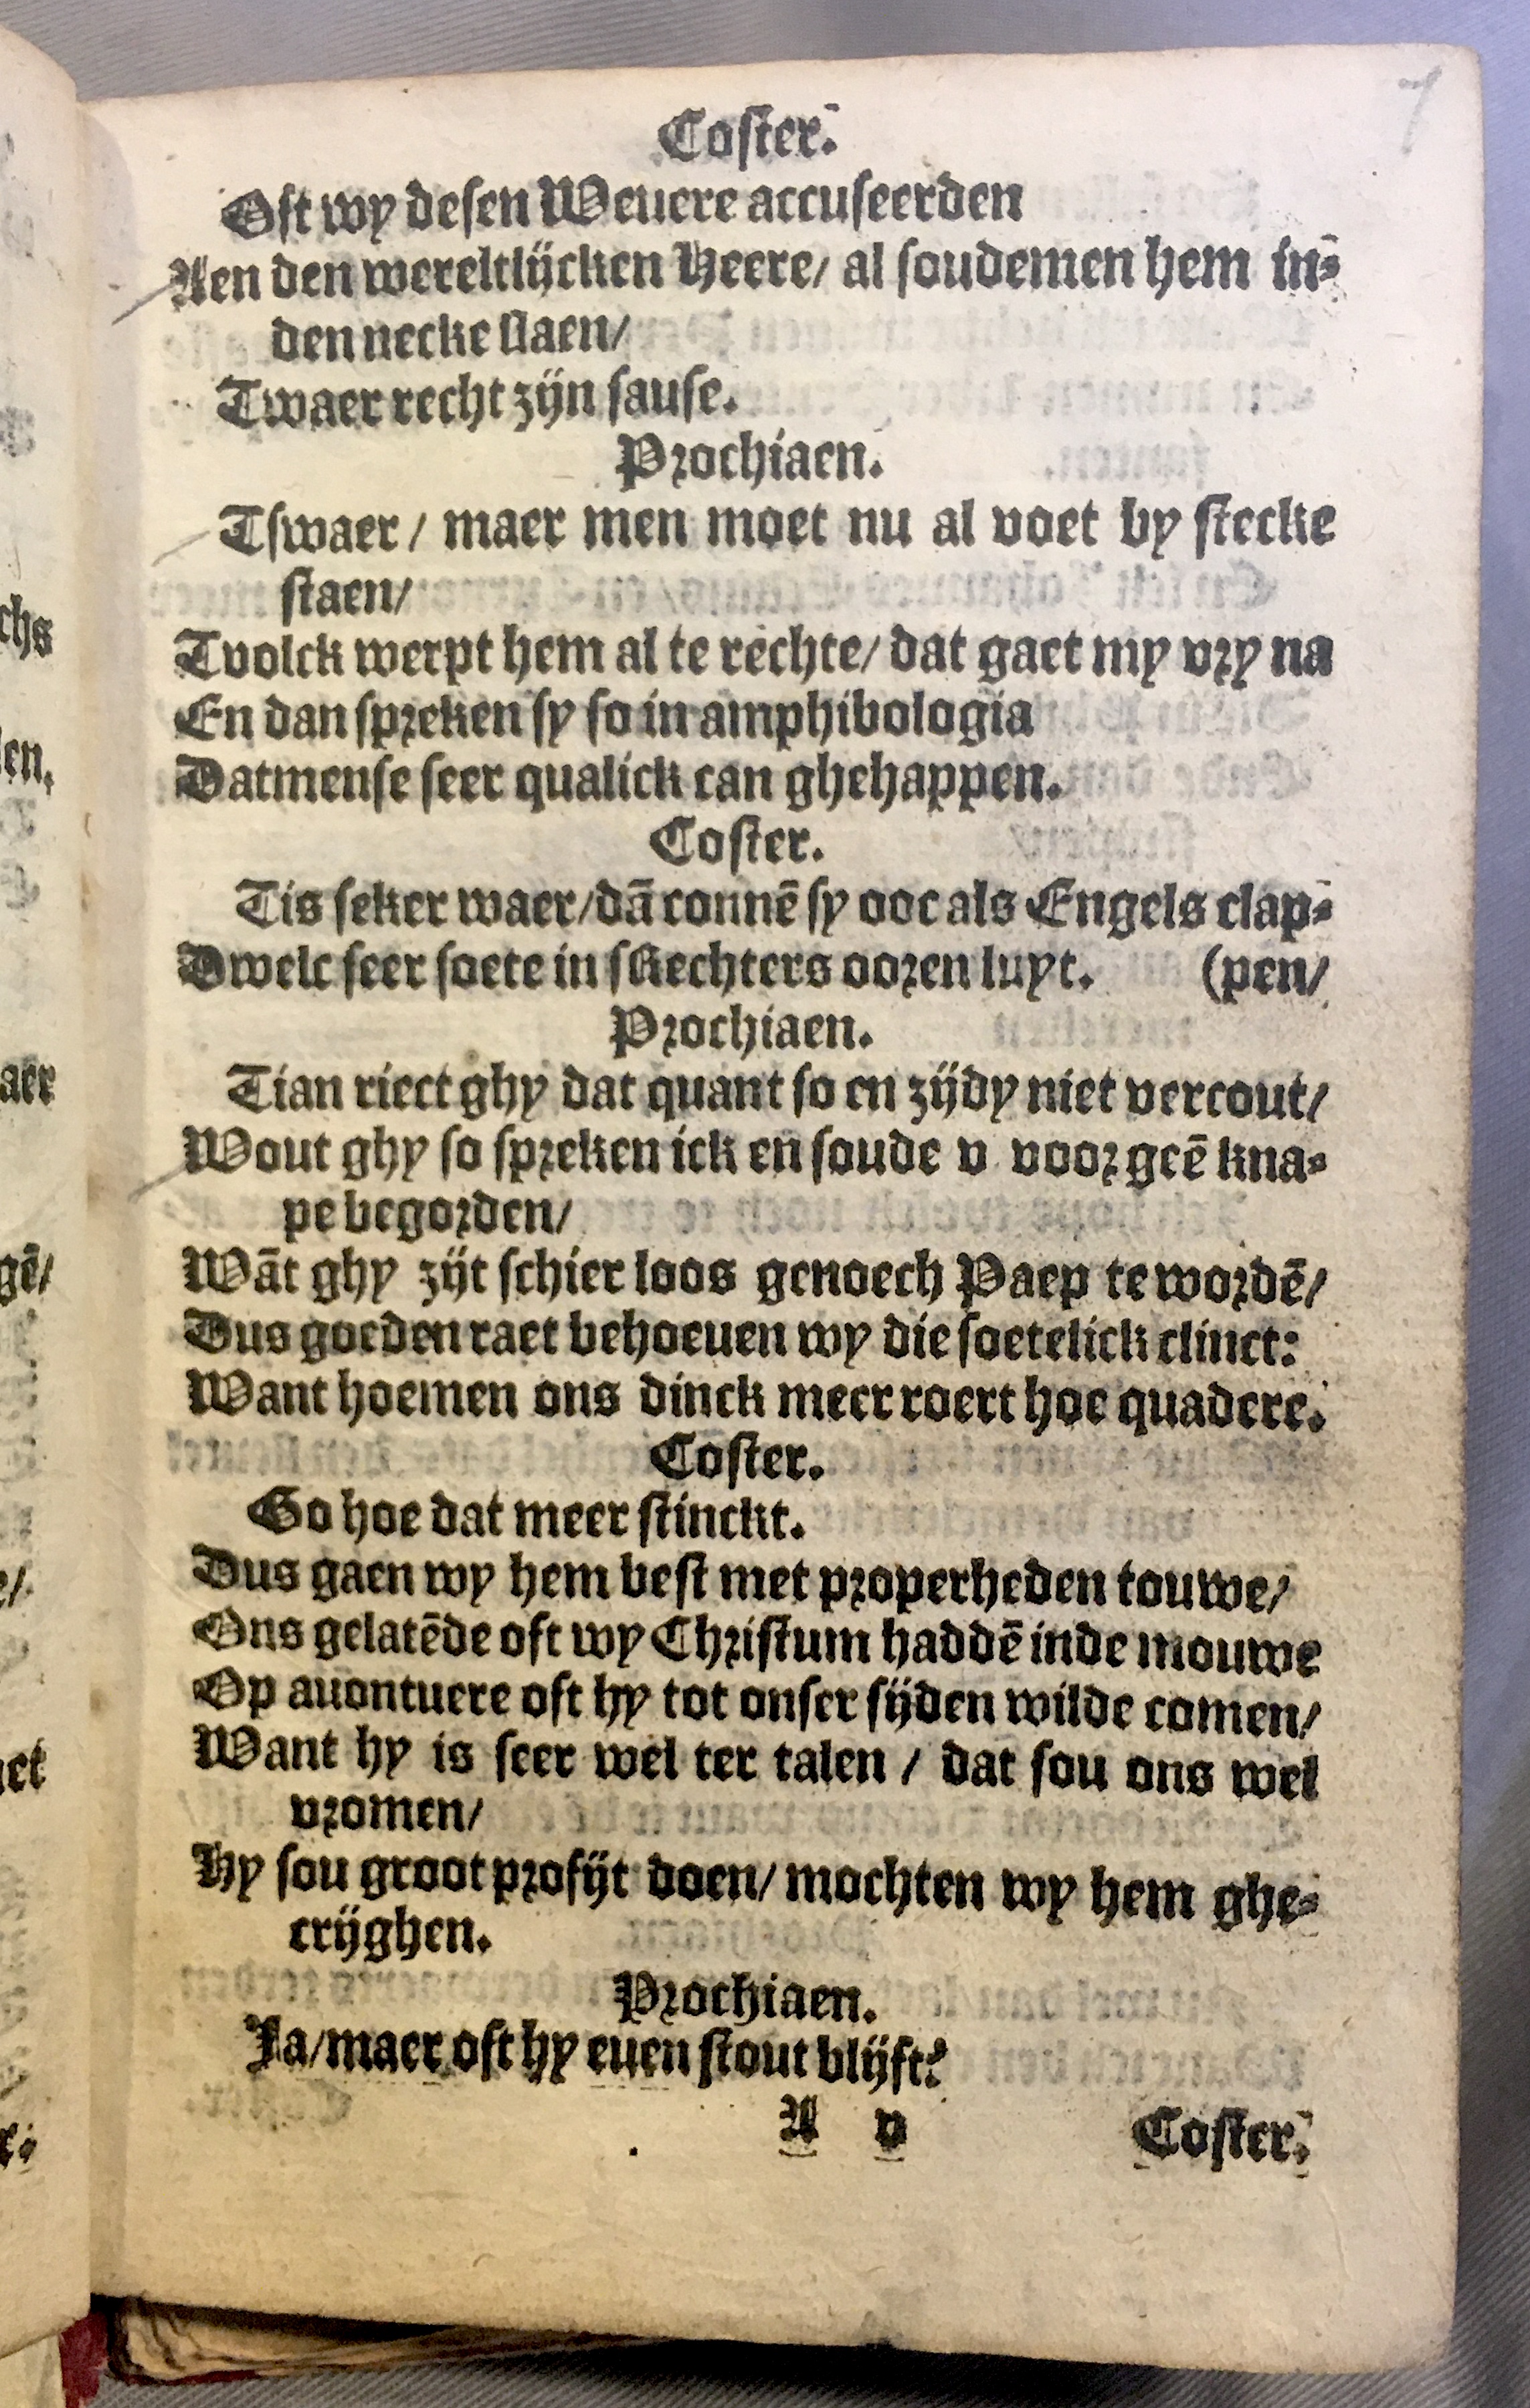 Coster.
Oft wy desen Weuere accuseerden
Aen den wereltlijcken Heere/ al soudemen hem in-
den necke slaen/
Twaer recht zijn sause.
Prochiaen.
Tswaer/ maer men moet nu al voet by stecke
staen/
Tvolck werpt hem al te rechte/ dat gaet my vry na
En dan spreken sy so in amphibologia
Datmense seer qualick can ghehappen.
Coster.
Tis seker waer/dā connē sy ooc als Engels clap-
Dwelc seer soete in sRechters ooren luyt. (pen/
Prochiaen.
Tian riect ghy dat quant so en zijdy niet vercout/
Wout ghy so spreken ick en soude v voor geē kna-
pe begorden/
Wāt ghy zijt schier loos genoech Paep te wordē/
Dus goeden raet behoeuen wy die soetelick clinct:
Want hoemen ons dinck meer roert hoe quadere.
Coster.
Go hoe dat meer stinckt.
Dus gaen wy hem best met properheden touwe/
Ons gelatēde oft wy Christum haddē inde mouwe
Op auontuere oft hy tot onser sijden wilde comen/
Want hy is seer wel ter talen / dat sou ons wel
vromen/
Hy sou groot profijt doen/ mochten wy hem ghe-
crijghen.
Prochiaen.
Ja/maer oft hy euen stout blijft?
A v Coster.